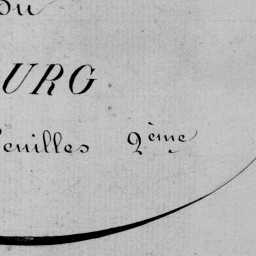 du
OURG
feuilles 2ème